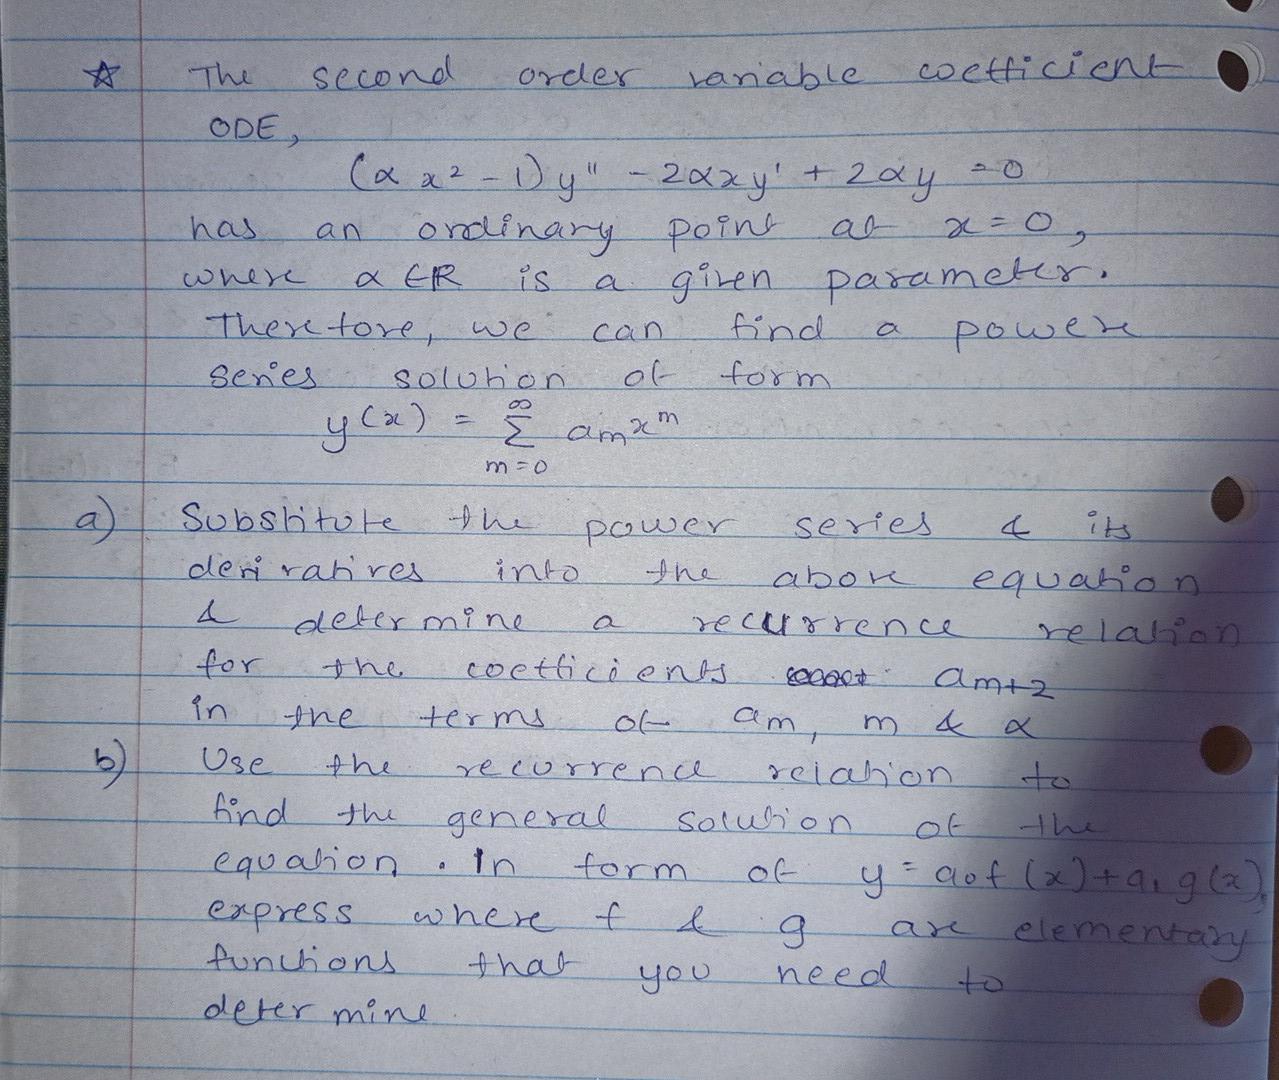 ☆ The second order variable coefficient
ODE,
(α x² - 1) y" - 2αxy' + 2αy = 0
has an ordinary point at x = 0,
where α ∈ R is a given parameter.
Therefore, we can find a power
series solution of form
y(x) = ∞ Σ m=0 amx^m
a) Substitute the power series & its
derivatives into the above equation
& determine a recurrence relation
for the coefficients am+2
in the terms of am, m & α
b) Use the recurrence relation to
find the general solution of the
equation. In form of y = a0f(x) + a1g(x),
express where f & g are elementary
functions that you need to
determine